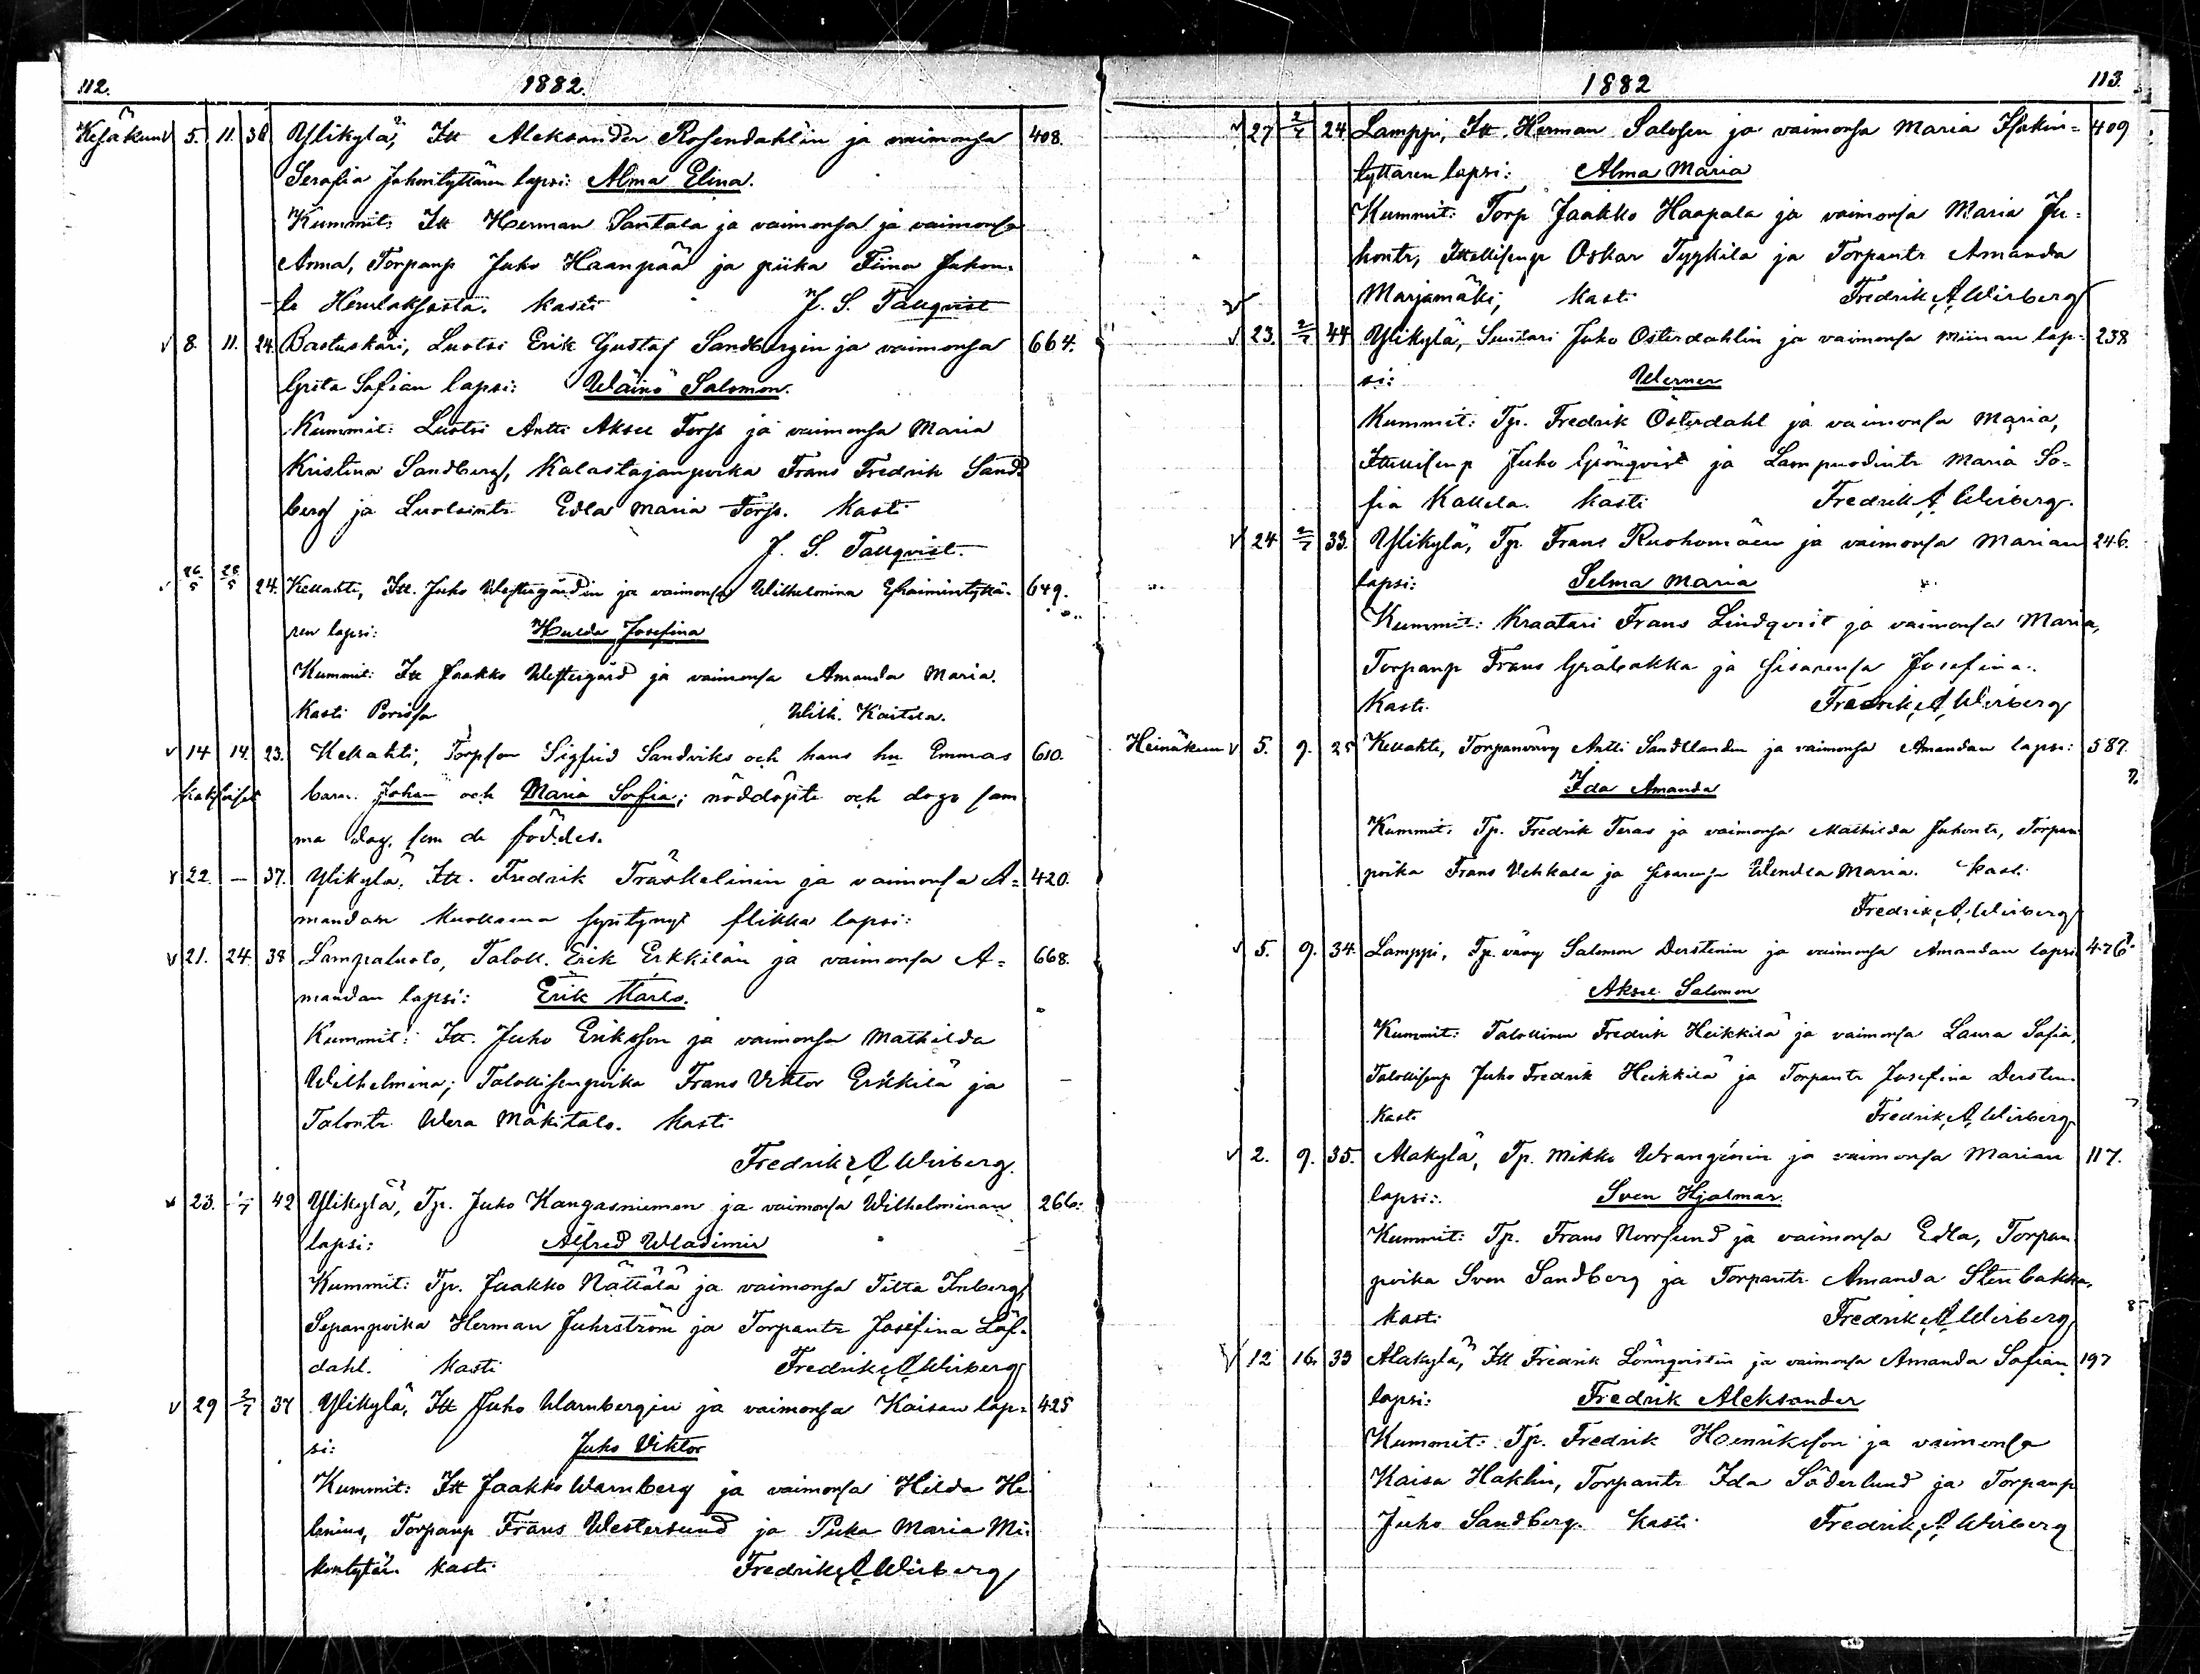 112. 1882.
Kesäkuu v 5. 11. 38 Ylikylä, Itt Aleksander Rosendahlin ja vaimonsa 408.
Serafia Johantyttären lapsi: Alma Elina.
Kummit: Itt Herman Santala ja vaimonsa ja vaimonsa
Anna, Torpanp Juho Haanpää ja piika Fiina
kasti J. S. Tallqvist
v 8. 11. 24. Bastuskäri, Luotsi Erik Gustaf Sandbergin ja vaimonsa 664.
Greta Sofian lapsi: Wäinö Salomon.
Kummit: Luotsi Antti Aksel Forss ja vaimonsa Maria
Kristina Sandberg, Kalastajanpoika Frans Fredrik Sand=
berg ja Luotsintr Edla Maria Forss. Kasti
J. S. Tallqvist.
26/5 28/5 24. Kellahti, Itt. Juho Westergårdin ja vaimonsa Wilhelmina Efraimintyttä- 649.
ren lapsi: Hulda Josefina
Kummit: Itt Jaakko Westergård ja vaimonsa Amanda Maria.
Kasti Porissa Wilh. Kaitila.
v 14 14. 23. Kellahti, Torpson Sigfrid Sandviks och hans hu Emmas 610.
kaksoiset barn. Johan och Maria Sofia; nöddöpte och dogo sam
ma dag, som de föddes.
v 22. — 37. Ylikylä, Itt. Fredrik Träskelinin ja vaimonsa A= 420.
mandan kuolleena syntynyt flikka lapsi:
v 21. 24. 38 Lampaluoto, Taloll. Erik Erkkilän ja vaimonsa A= 668.
mandan lapsi: Erik Karlo.
Kummit: Itt. Juho Eriksson ja vaimonsa Mathilda
Wilhelmina; Talollisenpoika Frans Viktor Erkkilä ja
Talontr. Wera Mäkitalo. Kasti
Fredrik A. Wirberg.
23. 1/7 42 Ylikylä, Tp. Juho Kangasniemen ja vaimonsa Wilhelminan 266.
lapsi: Alfred Wladimir
Kummit: Tp. Jaakko Nättälä ja vaimonsa Titta Inberg,
Sepanpoika Herman Juhrström ja Torpantr Josefina Löf-
dahl. Kasti Fredrik A. Wirberg
v 29 2/7 37 Ylikylä, Itt Juho Warnbergin ja vaimonsa Kaisan lap= 425
si: Juho Viktor
Kummit: Itt Jaakko Warnberg ja vaimonsa Hilda He
lenius, Torpanp Frans Westerlund ja Piika Maria Mi-
kontytär. Kasti Fredrik A. Wirberg
1882 113.
v 27 2/7 24. Lamppi, Itt. Herman Salosen ja vaimonsa Maria Isakin= 409
tyttären lapsi: Alma Maria
Kummit: Torp Jaakko Haapala ja vaimonsa Maria Ju=
hontr, Itsellisenp Oskar Tyykilä ja Torpantr Amanda
Marjamäki, Kasti Fredrik A. Wirberg
v 23. 2/7 44 Ylikylä, Suutari Juho Österdahlin ja vaimonsa Miinan lap= 238
si: Werner
Kummit: Tp. Fredrik Österdahl ja vaimonsa Maria,
Itsellisenp Juho Grönqvist ja Lampuodintr Maria So=
fia Kallela. Kasti Fredrik A. Wirberg.
v 24 2/7 33. Ylikylä, Tp. Frans Ruohomäen ja vaimonsa Marian 246.
lapsi: Selma Maria
Kummit: Kraatari Frans Lindqvist ja vaimonsa Maria,
Torpanp Frans Gråbakka ja sisarensa Josefina.
Kasti. Fredrik A. Wirberg
Heinäkuu v 5. 9. 25 Kellahti, Torpanvävy Antti Sandllundin ja vaimonsa Amandan lapsi: 587.
Ida Amanda
Kummit: Tp. Fredrik Teras ja vaimonsa Mathilda Juhontr, Torpan
poika Frans Vehkala ja sisarensa Wendla Maria. Kasti.
Fredrik A. Wirberg
v 5. 9. 34. Lamppi, Tp. vävy Salomon Derstenin ja vaimonsa Amandan lapsi 476
Aksel Salomon
Kummit: Talollinen Fredrik Heikkilä ja vaimonsa Laura Sofia,
Talollisenp Juho Fredrik Heikkilä ja Torpantr Josefina Dersten.
Kasti Fredrik A. Wirberg
v 2. 9. 35. Alakylä, Tp. Mikko Wrangénin ja vaimonsa Marian 117.
lapsi: Sven Hjalmar.
Kummit: Tp. Frans Norrlund ja vaimonsa Edla, Torpan
poika Sven Sandberg ja Torpantr. Amanda Stenbakka,
Kasti Fredrik A. Wirberg
v 12 16. 33 Alakylä, Itt Fredrik Lönnqvistin ja vaimonsa Amanda Sofian 197
lapsi: Fredrik Aleksander
Kummit: Tp. Fredrik Henriksson ja vaimonsa
Kaisa Haklin, Torpantr Ida Söderlund ja Torpanp
Juho Sandberg. Kasti Fredrik A. Wirberg